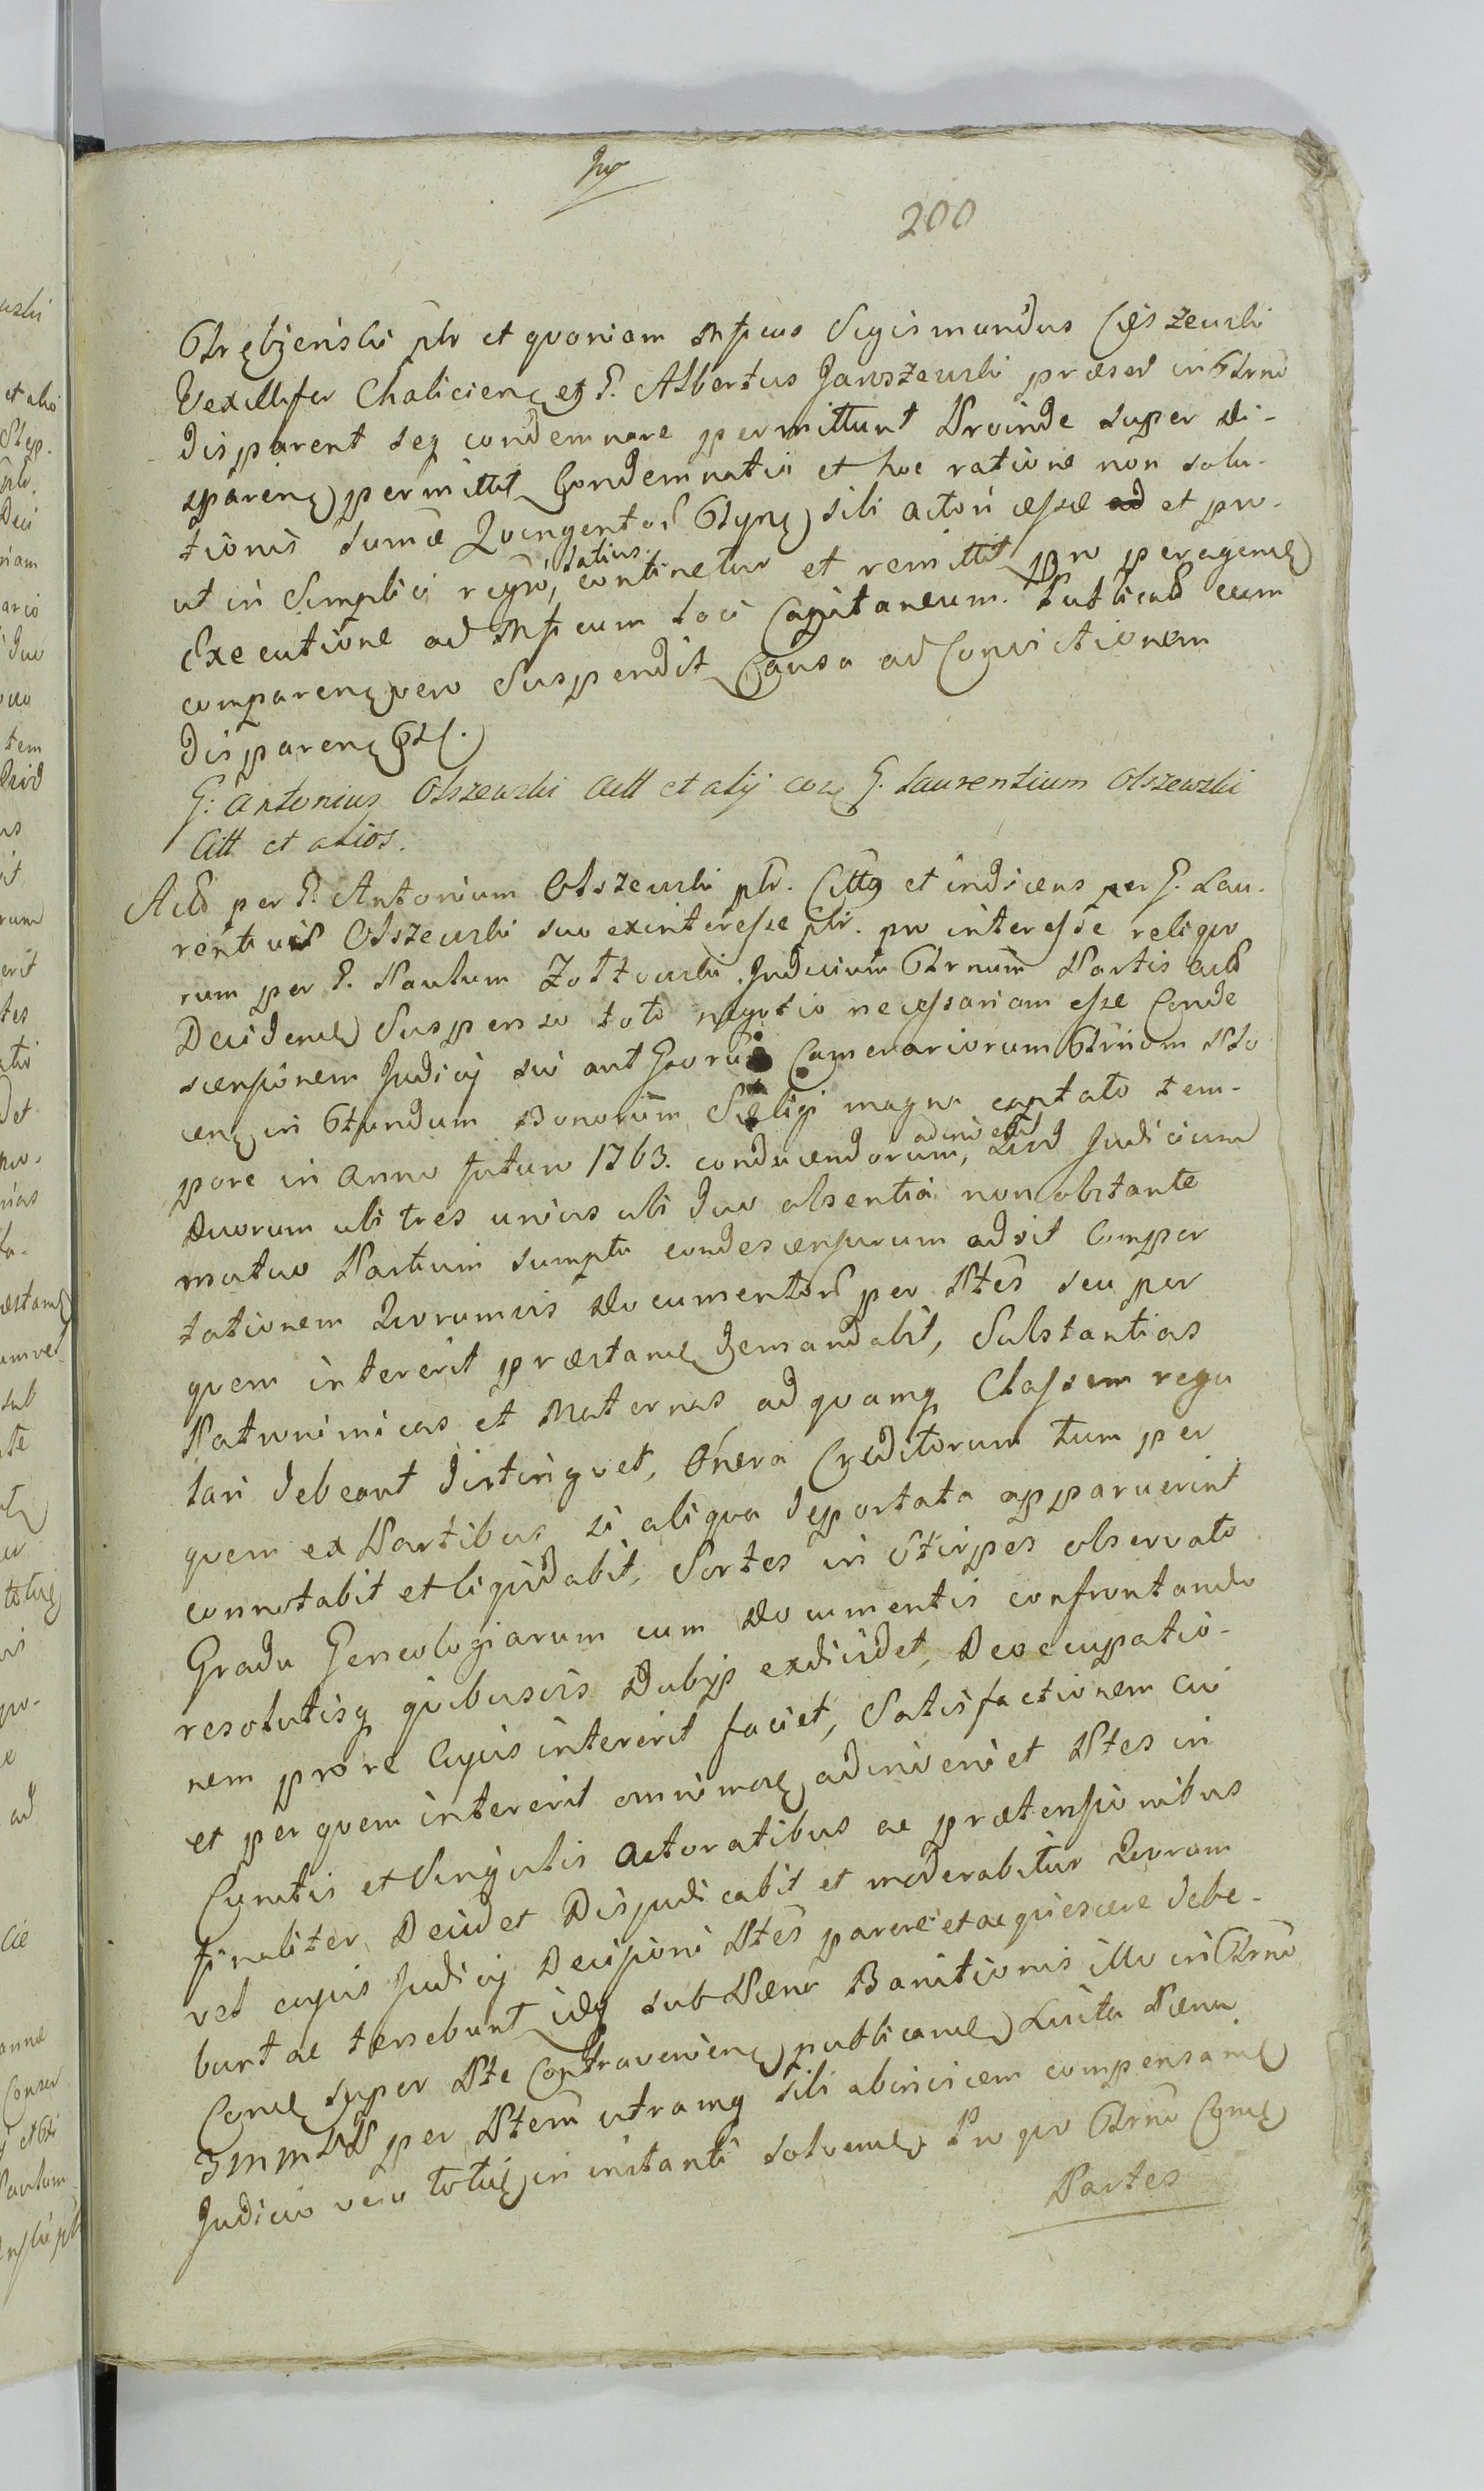 200
ptr et quoniam Mfcus Sigismundus Cieszewski
Vexillifer Chalicien et G. Albertus Janiszewski præsed in Gtrno
disparent seq condemnare permittunt Proinde super di-
sparen permittit Condemnatio et hoc ratione non solu-
tionis sumæ Quingentor sibi actori cessæ ad et pro-
satius
ut in Simplici regro, continetur et remittit pro peragend
Executione ad Mfcum loci Capitaneum. Publicat cum
comparen vero Suspendit Causa ad Convictionem
disparen
G: Antonius Olszewski Act et alij cor G. Laurentium Olszewski
Citt et alios.
Act per G. Antonium Olszewski ptr. Citt et indicens per G. Lau-
rentium Olszewski suo exinteresse ptr. pro interesse reliquo
rum per G. Paulum Zołtowski Judicium Gtrnum Partis Act
Decidend Suspenso toto negotio necessariam esse Conde
scensionem Judicij sui ant Camerariorum Gtrnom
in fundum Bonorum Seligi magna captato tem-
adinvenit
pore in Anno futuro 1763. conducendorum, Quod Judicium
Duorum ubi tres unius ubi duo absentia non obstante
mutuo Partium sumptu condescensurum adsit Compor
tationem Quorumvis Documentor per Ptes seu per
quem intererit præstand demandabit, Substantias
Patrimonicas et Maternas ad quamq Classem regu
lari debeant distinguet, Onera Creditorum tum per
quem ex Partibus si aliqua deportata apparuerint
connotabit et liquidabit, Sortes in Stirpes observato
Gradu Geneologiarum cum Documentis confrontando
resolutisq quibusvis Dubijs exdividet, Deoccupatio-
nem pro re Cujus intererit faciet, Satisfactionem cui
et per quem intererit omnimod adinveniet Ptes in
Cunctis et Singulis Actoratibus ac prætensionibus
finaliter Decidet Disjudicabit et moderabitur Quorum
vel cujus Judicij Decisioni Ptes parere et acquiescere debe-
bunt ac tenebunt idq sub Pæna Banitionis illo in Gtrno
Cond super Pte Contravenien publicand Luita Pæna
3mmP per Ptem utramq sibi abinvicem compensand
Judicio vero totid in instanti solvend Pro quo Gtrno Cond
Partes